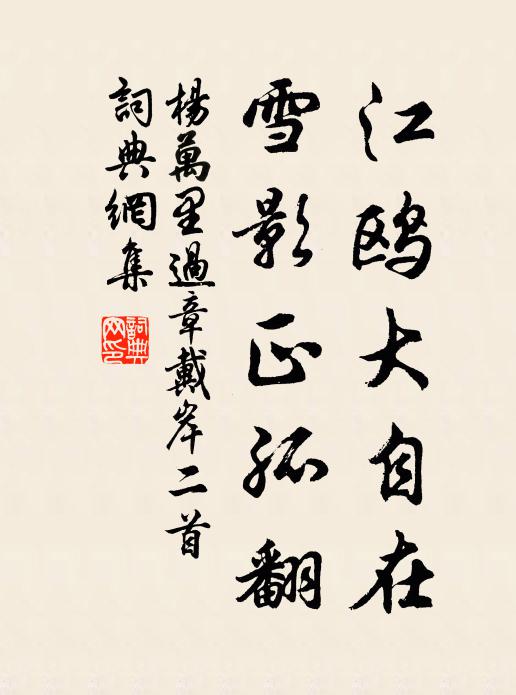 江鸥大自在
雪影正孤翻
楊萬里過章戴岸二首
詞典網集
詞典
网印